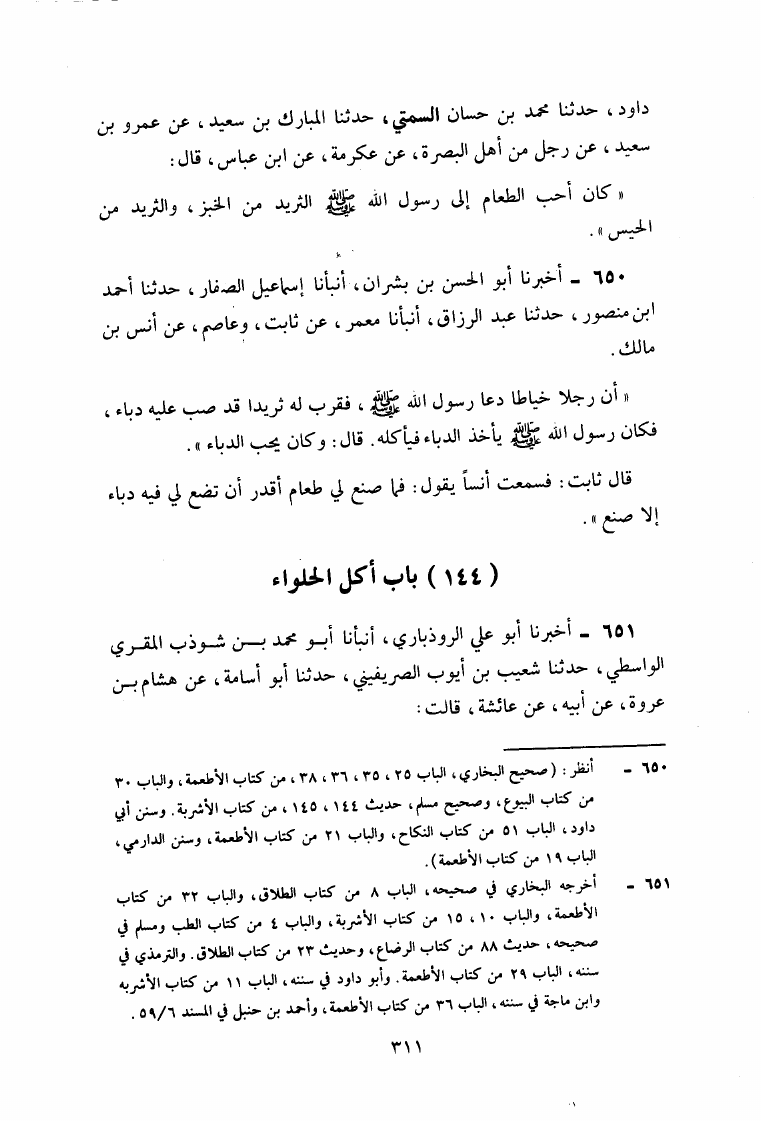 داود ، حدثنا محمد بن حسان السمتي ، حدثنا المبارك بن سعيد ، عن عمرو بن
سعيد ، عن رجل من أهل البصرة ، عن عكرمة ، عن ابن عباس ، قال :
« كان أحب الطعام إلى رسول الله ﷺ الثريد من الخبز ، والثريد من
الحيس » .
٦٥٠ ـ أخبرنا أبو الحسن بن بشران ، أنبأنا إسماعيل الصفار ، حدثنا أحمد
ابن منصور ، حدثنا عبد الرزاق ، أنبأنا معمر ، عن ثابت ، وعاصم ، عن أنس بن
مالك .
« أن رجلا خياطا دعا رسول الله ﷺ ، فقرب له ثريدا قد صب عليه دباء ،
فكان رسول الله ﷺ يأخذ الدباء فيأكله . قال : وكان يحب الدباء » .
قال ثابت : فسمعت أنساً يقول : فما صنع لي طعام أقدر أن تضع لي فيه دباء
إلا صنع » .
( ١٤٤ ) باب أكل الحلواء
٦٥١ ـ أخبرنا أبو علي الروذباري ، أنبأنا أبو محمد بن شوذب المقري
الواسطي ، حدثنا شعيب بن أيوب الصريفيني ، حدثنا أبو أسامة ، عن هشام بن
عروة ، عن أبيه ، عن عائشة ، قالت :
٦٥٠ ـ أنظر : (صحيح البخاري ، الباب ٢٥ ، ٣٥ ، ٣٦ ، ٣٨ ، من كتاب الأطعمة ، والباب ٣٠
من كتاب البيوع ، وصحيح مسلم ، حديث ١٤٤ ، ١٤٥ ، من كتاب الأشربة . وسنن أبي
داود ، الباب ٥١ من كتاب النكاح ، والباب ٢١ من كتاب الأطعمة ، وسنن الدارمي ،
الباب ١٩ من كتاب الأطعمة ) .
٦٥١ ـ أخرجه البخاري في صحيحه ، الباب ٨ من كتاب الطلاق ، والباب ٣٢ من كتاب
الأطعمة ، والباب ١٠ ، ١٥ من كتاب الأشربة ، والباب ٤ من كتاب الطب ومسلم في
صحيحه ، حديث ٨٨ من كتاب الرضاع ، وحديث ٢٣ من كتاب الطلاق . والترمذي في
سننه ، الباب ٢٩ من كتاب الأطعمة . وأبو داود في سننه ، الباب ١١ من كتاب الأشربه
وابن ماجة في سننه ، الباب ٣٦ من كتاب الأطعمة ، وأحمد بن حنبل في المسند ٥٩/٦ .
٣١١